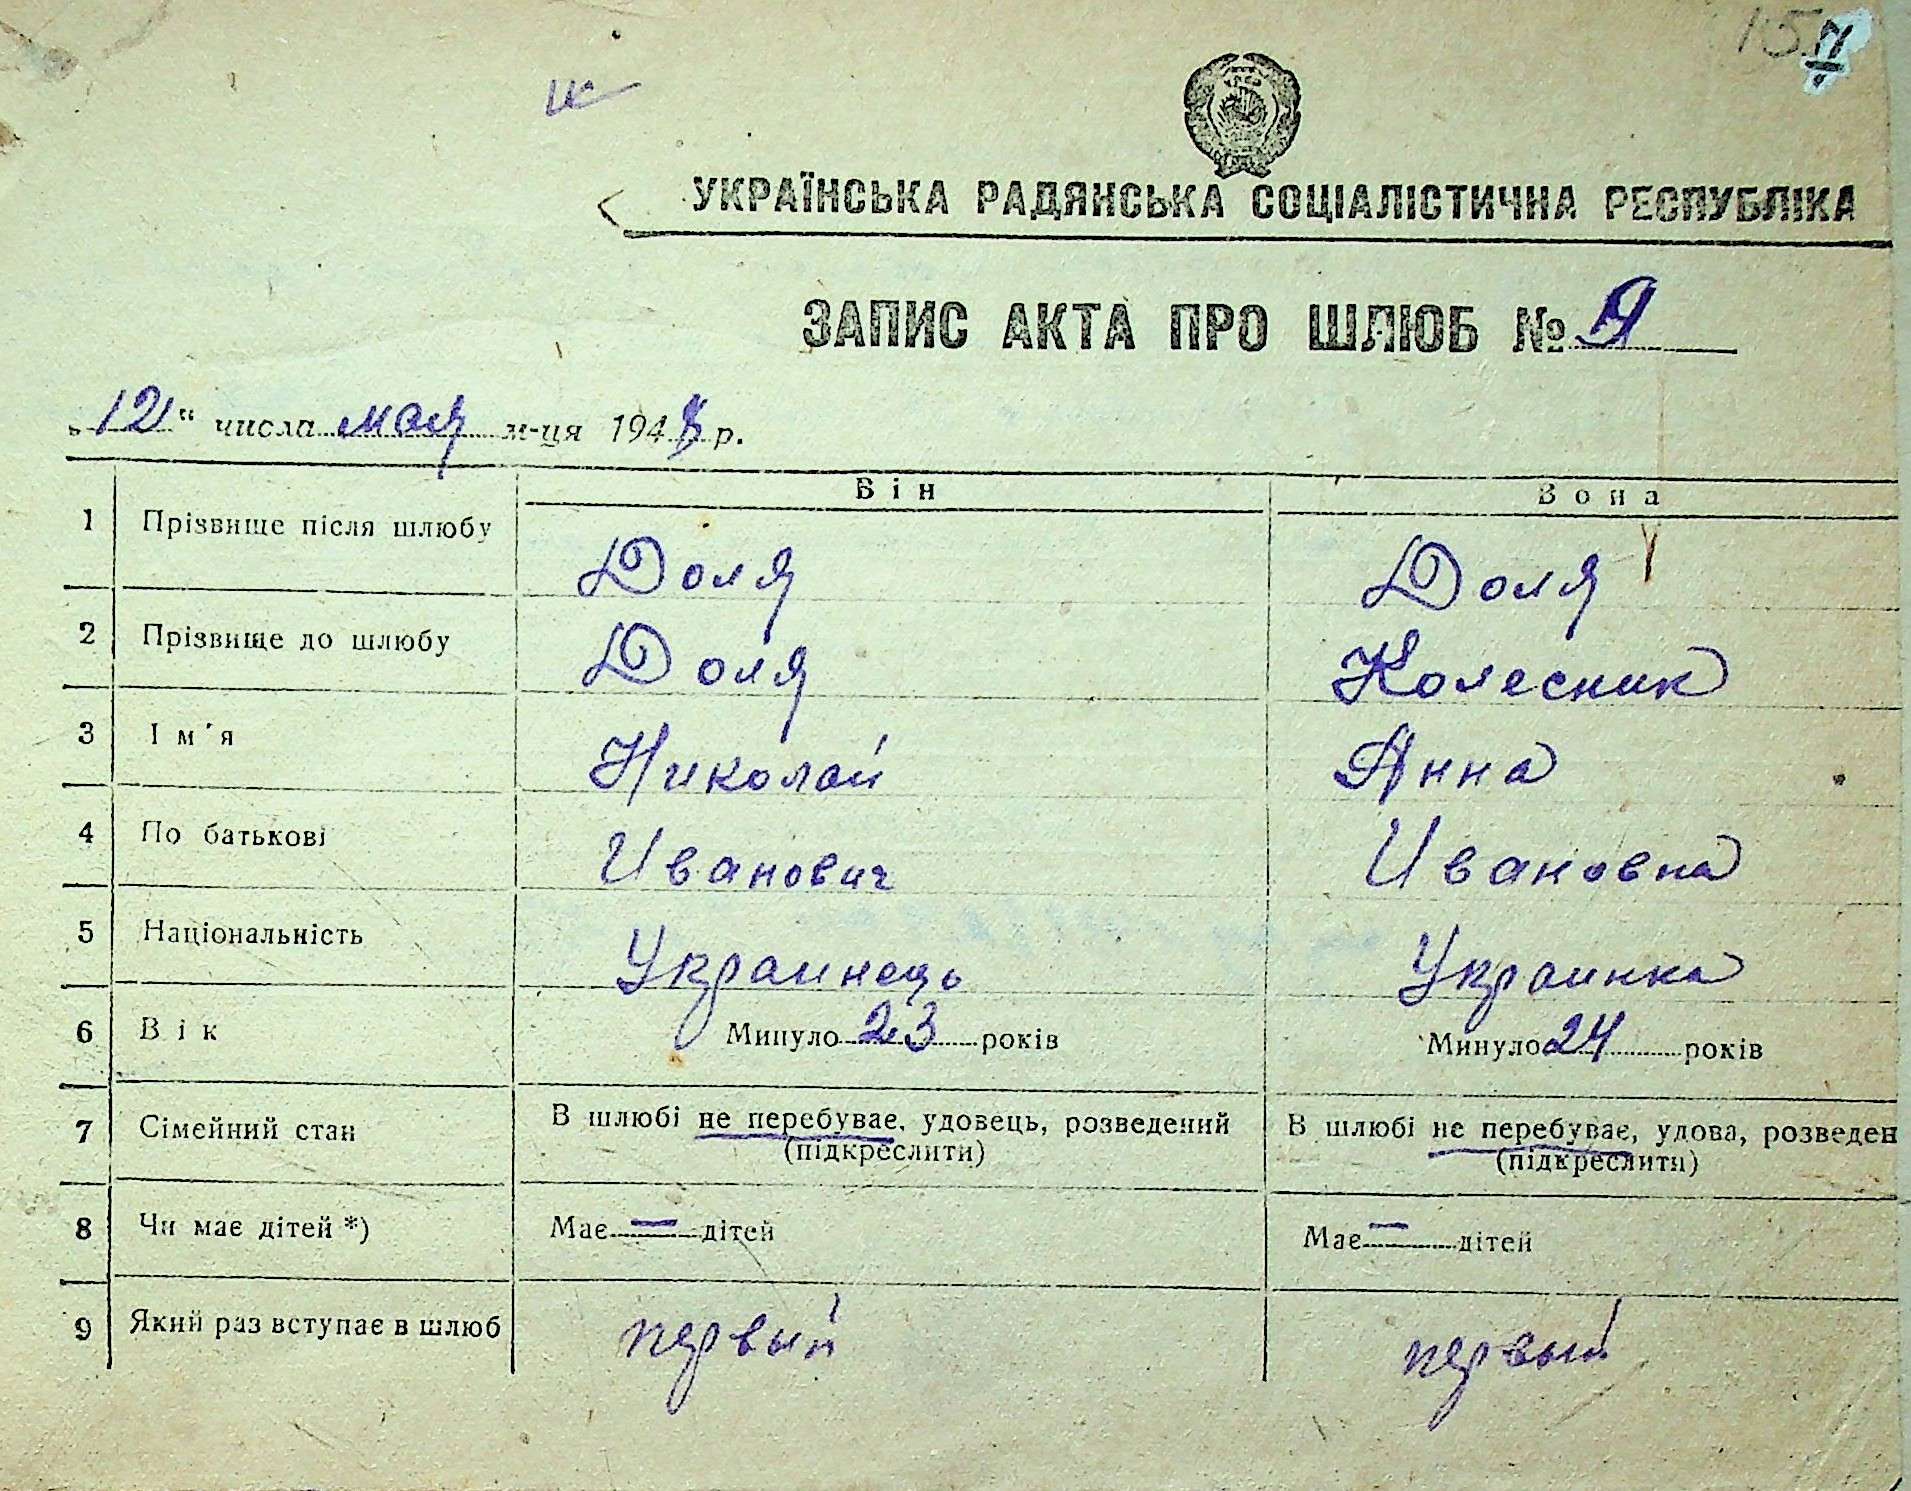 УКРАЇНСЬКА РАДЯНСЬКА СОЦІАЛІСТИЧНА РЕСПУБЛІКА
ЗАПИС АКТА ПРО ШЛЮБ № 9
„12“ числа мая м-ця 1948 р.
Він Вона
1 Прізвище після шлюбу Доля Доля
2 Прізвище до шлюбу Доля Колесник
3 Ім'я Николай Анна
4 По батькові Иванович Ивановна
5 Національність Украинець Украинка
6 Вік Минуло 23 років Минуло 24 років
7 Сімейний стан В шлюбі не перебуває, удовець, розведений В шлюбі не перебуває, удова, розведен
(підкреслити) (підкреслити)
8 Чи має дітей *) Має — дітей Має — дітей
9 Який раз вступає в шлюб первый первый